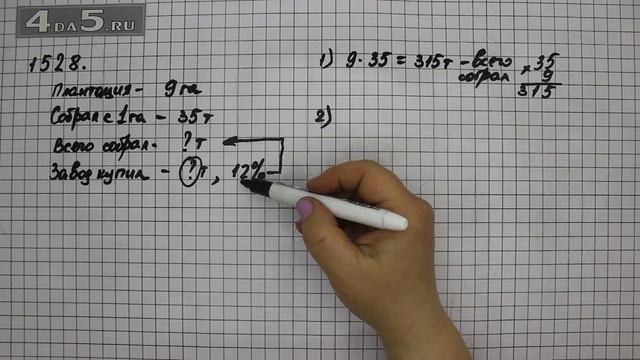 4DA5.RU
1528.
Плантация - 9 га
Собрал с 1 га - 35 т
Всего собрал - ? т
Завод купил - ? т, 12%
1) 9 · 35 = 315 т - всего
собрал
× 35
9
315
2)